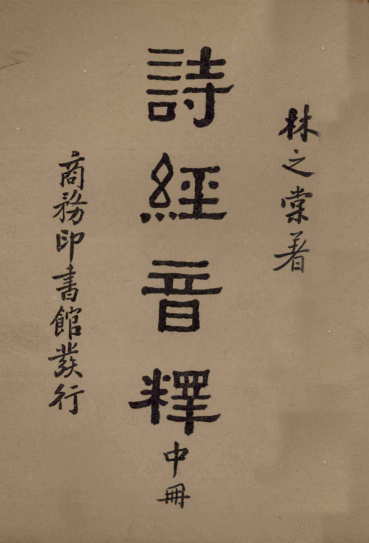 林之棠著
詩經音釋
中冊
商務印書館發行